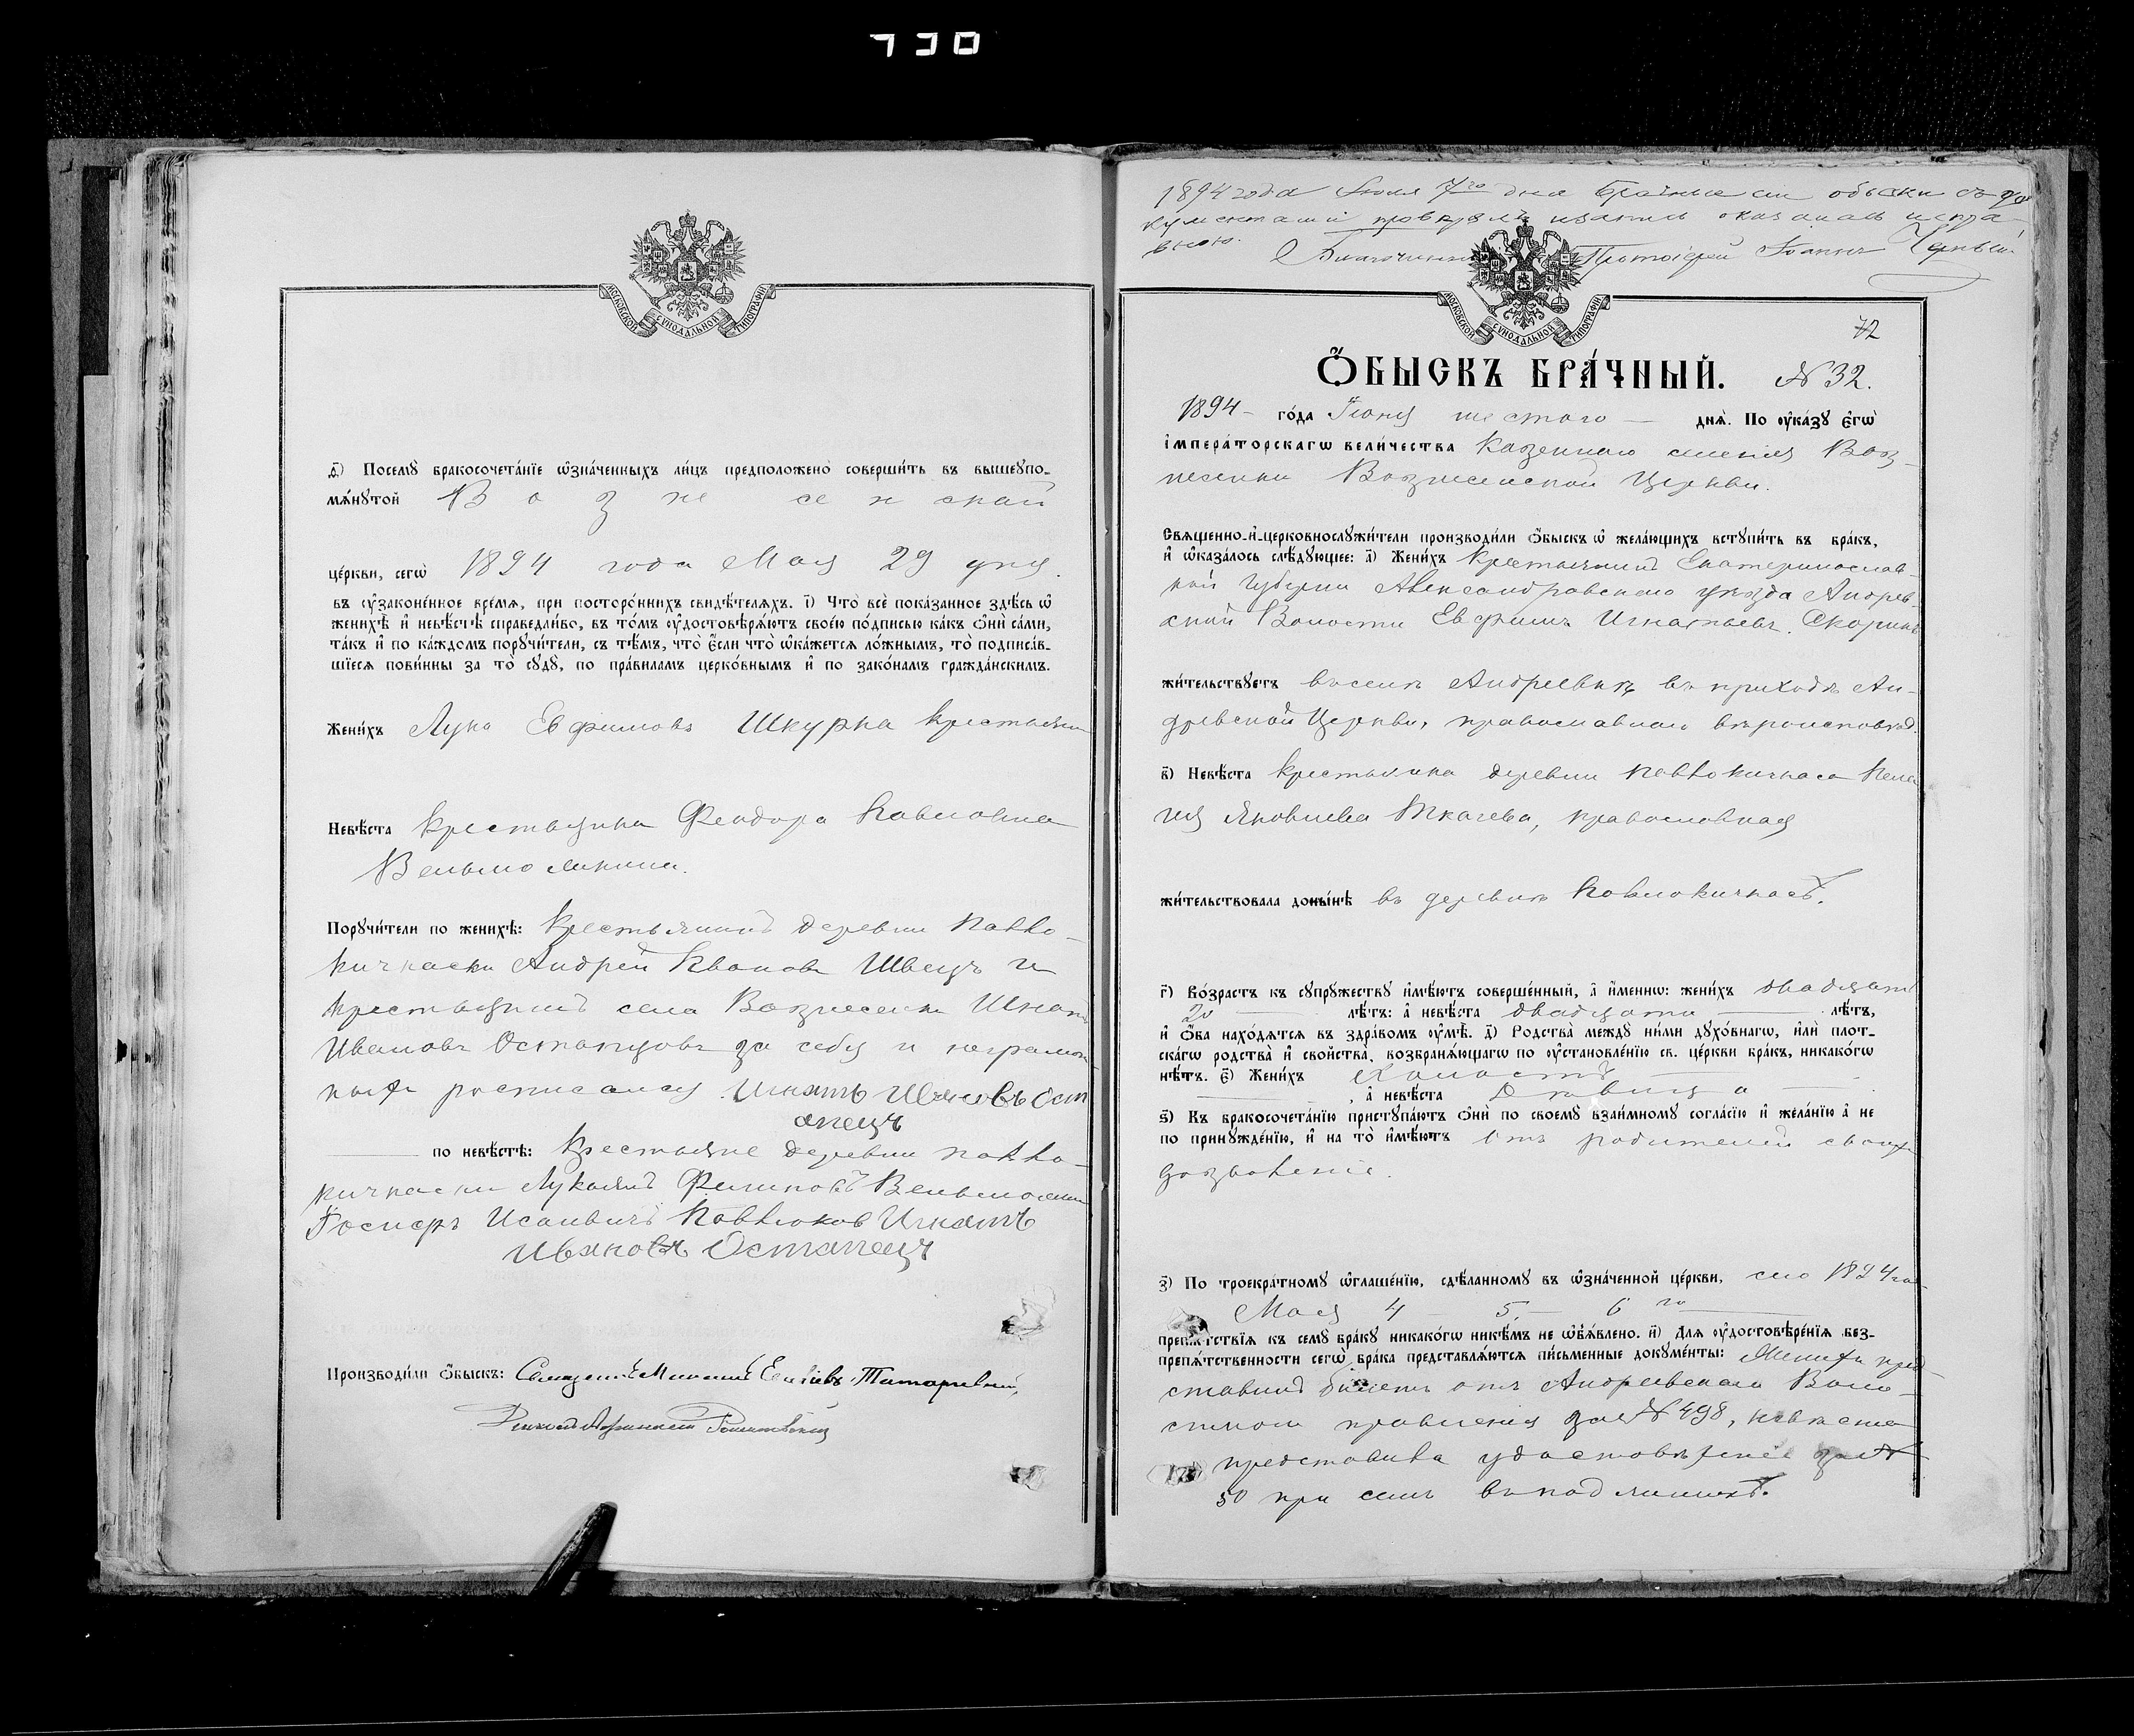 730
МОСКОВСКОЙ СѴНОДАЛЬНОЙ ТИПОГРАФІИ
ѳ҃) Посемꙋ бракосочета́нїе ѡ҆зна́ченныхъ ли́цъ предположено̀ соверши́ть въ вышеꙋпо-
мѧ́нꙋтой Вознесенской
це́ркви, сегѡ̀ 1894 года Мая 29 дня.
въ ᲂу҆зако́ненное вре́мѧ, при посторо́ннихъ свидѣ́телѧхъ. і҃) Что̀ всѐ пока́занное здѣ́сь ѡ҆
женихѣ̀ и҆ невѣ́стѣ справедли́во, въ то́мъ ᲂу҆достовѣрѧ́ютъ свое́ю по́дписью ка́къ ѻ҆нѝ са́ми,
та́къ и҆ по ка́ждомъ порꙋчи́тели, съ тѣ́мъ, что̀ є҆́сли что̀ ѡ҆ка́жетсѧ ло́жнымъ, то̀ подписа́в-
шїесѧ пови́нны за то̀ сꙋдꙋ̀, по пра́виламъ церко́внымъ и҆ по зако́намъ гражда́нскимъ.
Жени́хъ Лука Евфимовъ Шкурка крестьянинъ
Невѣ́ста крестьянка Феодора Павловна
Вельмоликина.
Порꙋчи́тели по женихѣ̀: Крестьянинъ деревни Павло-
кичкаски Андрей Ивановъ Швецъ и
крестьянинъ села Вознесенки Игнатъ
Ивановъ Остапцовъ за себя и неграмот
ныхъ росписался Игнатъ Ивановъ Ост
апецъ
по невѣ́стѣ: Крестьяне деревни Павло-
кичкаски Лукіянъ Филиповъ
Іосифъ Исаевичъ Павлюковъ Игнатъ
Ивановъ Остапецъ
Производи́ли ѻ҆́быскъ: Священникъ Татаревскій,
1894 года Іюля 7го дня брачные сіи обыски съ до
кументами провѣрялъ и оказалась испра-
вною.
Благочинный Протоіерей Іоаннъ Черный
МОСКОВСКОЙ СѴНОДАЛЬНОЙ ТИПОГРАФІИ
72
Ѻ҆́БЫСКЪ БРА́ЧНЫЙ. № 32.
1894 го́да Іюня шестого днѧ̀. По ᲂу҆ка́зꙋ є҆гѡ̀
і҆мпера́торскагѡ вели́чества Казеннаго имения Воз-
несенки Вознесенской Церкви.
Свѧще́нно-и҆-церковнослꙋжи́тели производи́ли ѻ҆́быскъ ѡ҆ жела́ющихъ встꙋпи́ть въ бра́къ,
и҆ ѡ҆каза́лось слѣ́дꙋющее: а҃) Жени́хъ Крестьянинъ Екатеринослав-
ской Губерніи Александровскаго уѣзда Андрев-
ской Волости Евфимъ Игнатьевъ Скорикъ
жи́тельствꙋетъ въ селѣ Андреевкѣ въ приходѣ Ан-
древской Церкви, православнаго вѣроисповѣд.
в҃) Невѣ́ста крестьянка деревни Павлокичкаса Пела
гия Яковлева Ткачева, православная
жи́тельствовала доны́нѣ въ деревнѣ Павлокичкасѣ.
г҃) Во́зрастъ къ сꙋпрꙋ́жествꙋ и҆мѣ́ютъ соверше́нный, а҆ и҆́меннѡ: жени́хъ двадцати
20 лѣ́тъ: а҆ невѣ́ста двадцати лѣ́тъ,
и҆ ѻ҆́ба нахо́дѧтсѧ въ здра́вомъ ᲂу҆мѣ̀. д҃) Родства̀ междꙋ̀ ни́ми дꙋхо́внагѡ, и҆лѝ плот-
ска́гѡ родства̀ и҆ сво́йства, возбранѧ́ющагѡ по ᲂу҆становле́нїю св. це́ркви бра́къ, никако́гѡ
нѣ́тъ. є҃) Жени́хъ Холостъ
, а҆ невѣ́ста Дѣвица
ѕ҃) Къ бракосочета́нїю пристꙋпа́ютъ ѻ҆нѝ по своемꙋ̀ взаи́мномꙋ согла́сїю и҆ жела́нїю а҆ не
по принꙋжде́нїю, и҆ на то̀ и҆мѣ́ютъ отъ родителей своихъ
дозволеніе.
з҃) По троекра́тномꙋ ѡ҆глаше́нїю, сдѣ́ланномꙋ въ ѡ҆зна́ченной це́ркви, сего 1894 го-
Мая 4 5, 6 го
препѧ́тствїѧ къ семꙋ̀ бра́кꙋ никако́гѡ никѣ́мъ не ѡ҆б̾ѧ́влено. и҃) Длѧ ᲂу҆достовѣре́нїѧ без-
препѧ́тственности сегѡ̀ бра́ка представлѧ́ютсѧ пи́сьменные докꙋме́нты: Женихъ пред
ставилъ билетъ отъ Андреевскаго Воло-
стного правленія за № 498, невѣста
представила удостовѣреніе за №
50 при семъ въ подлинникѣ.